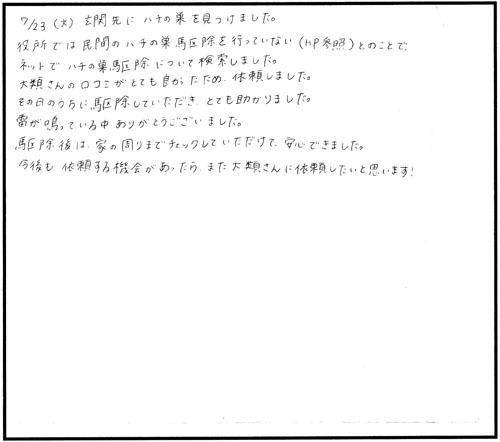 7/23 (火) 玄関先に ハチの巣を見つけました。
役所では民間のハチの巣駆除を行っていない (HP参照) とのことで、
ネットで ハチの巣駆除 について検索しました。
大類さんの口コミがとても良かったため、依頼しました。
その日のうちに駆除していただき、とても助かりました。
雷が鳴っている中ありがとうございました。
駆除後は、家の周りまでチェックしていただけて、安心できました。
今後も 依頼する機会があったら、また大類さんに依頼したいと思います!